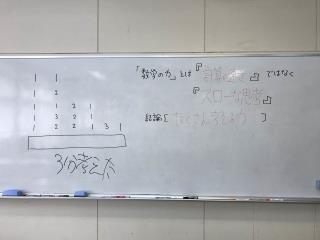 1 1
1 2
1 1 2 1
1 3 2 1
1 2 2 1 3 1
3分考えた
「数学の力」とは『計算の速さ』ではなく
『スローな思考』
結論[たくさん考えよう]